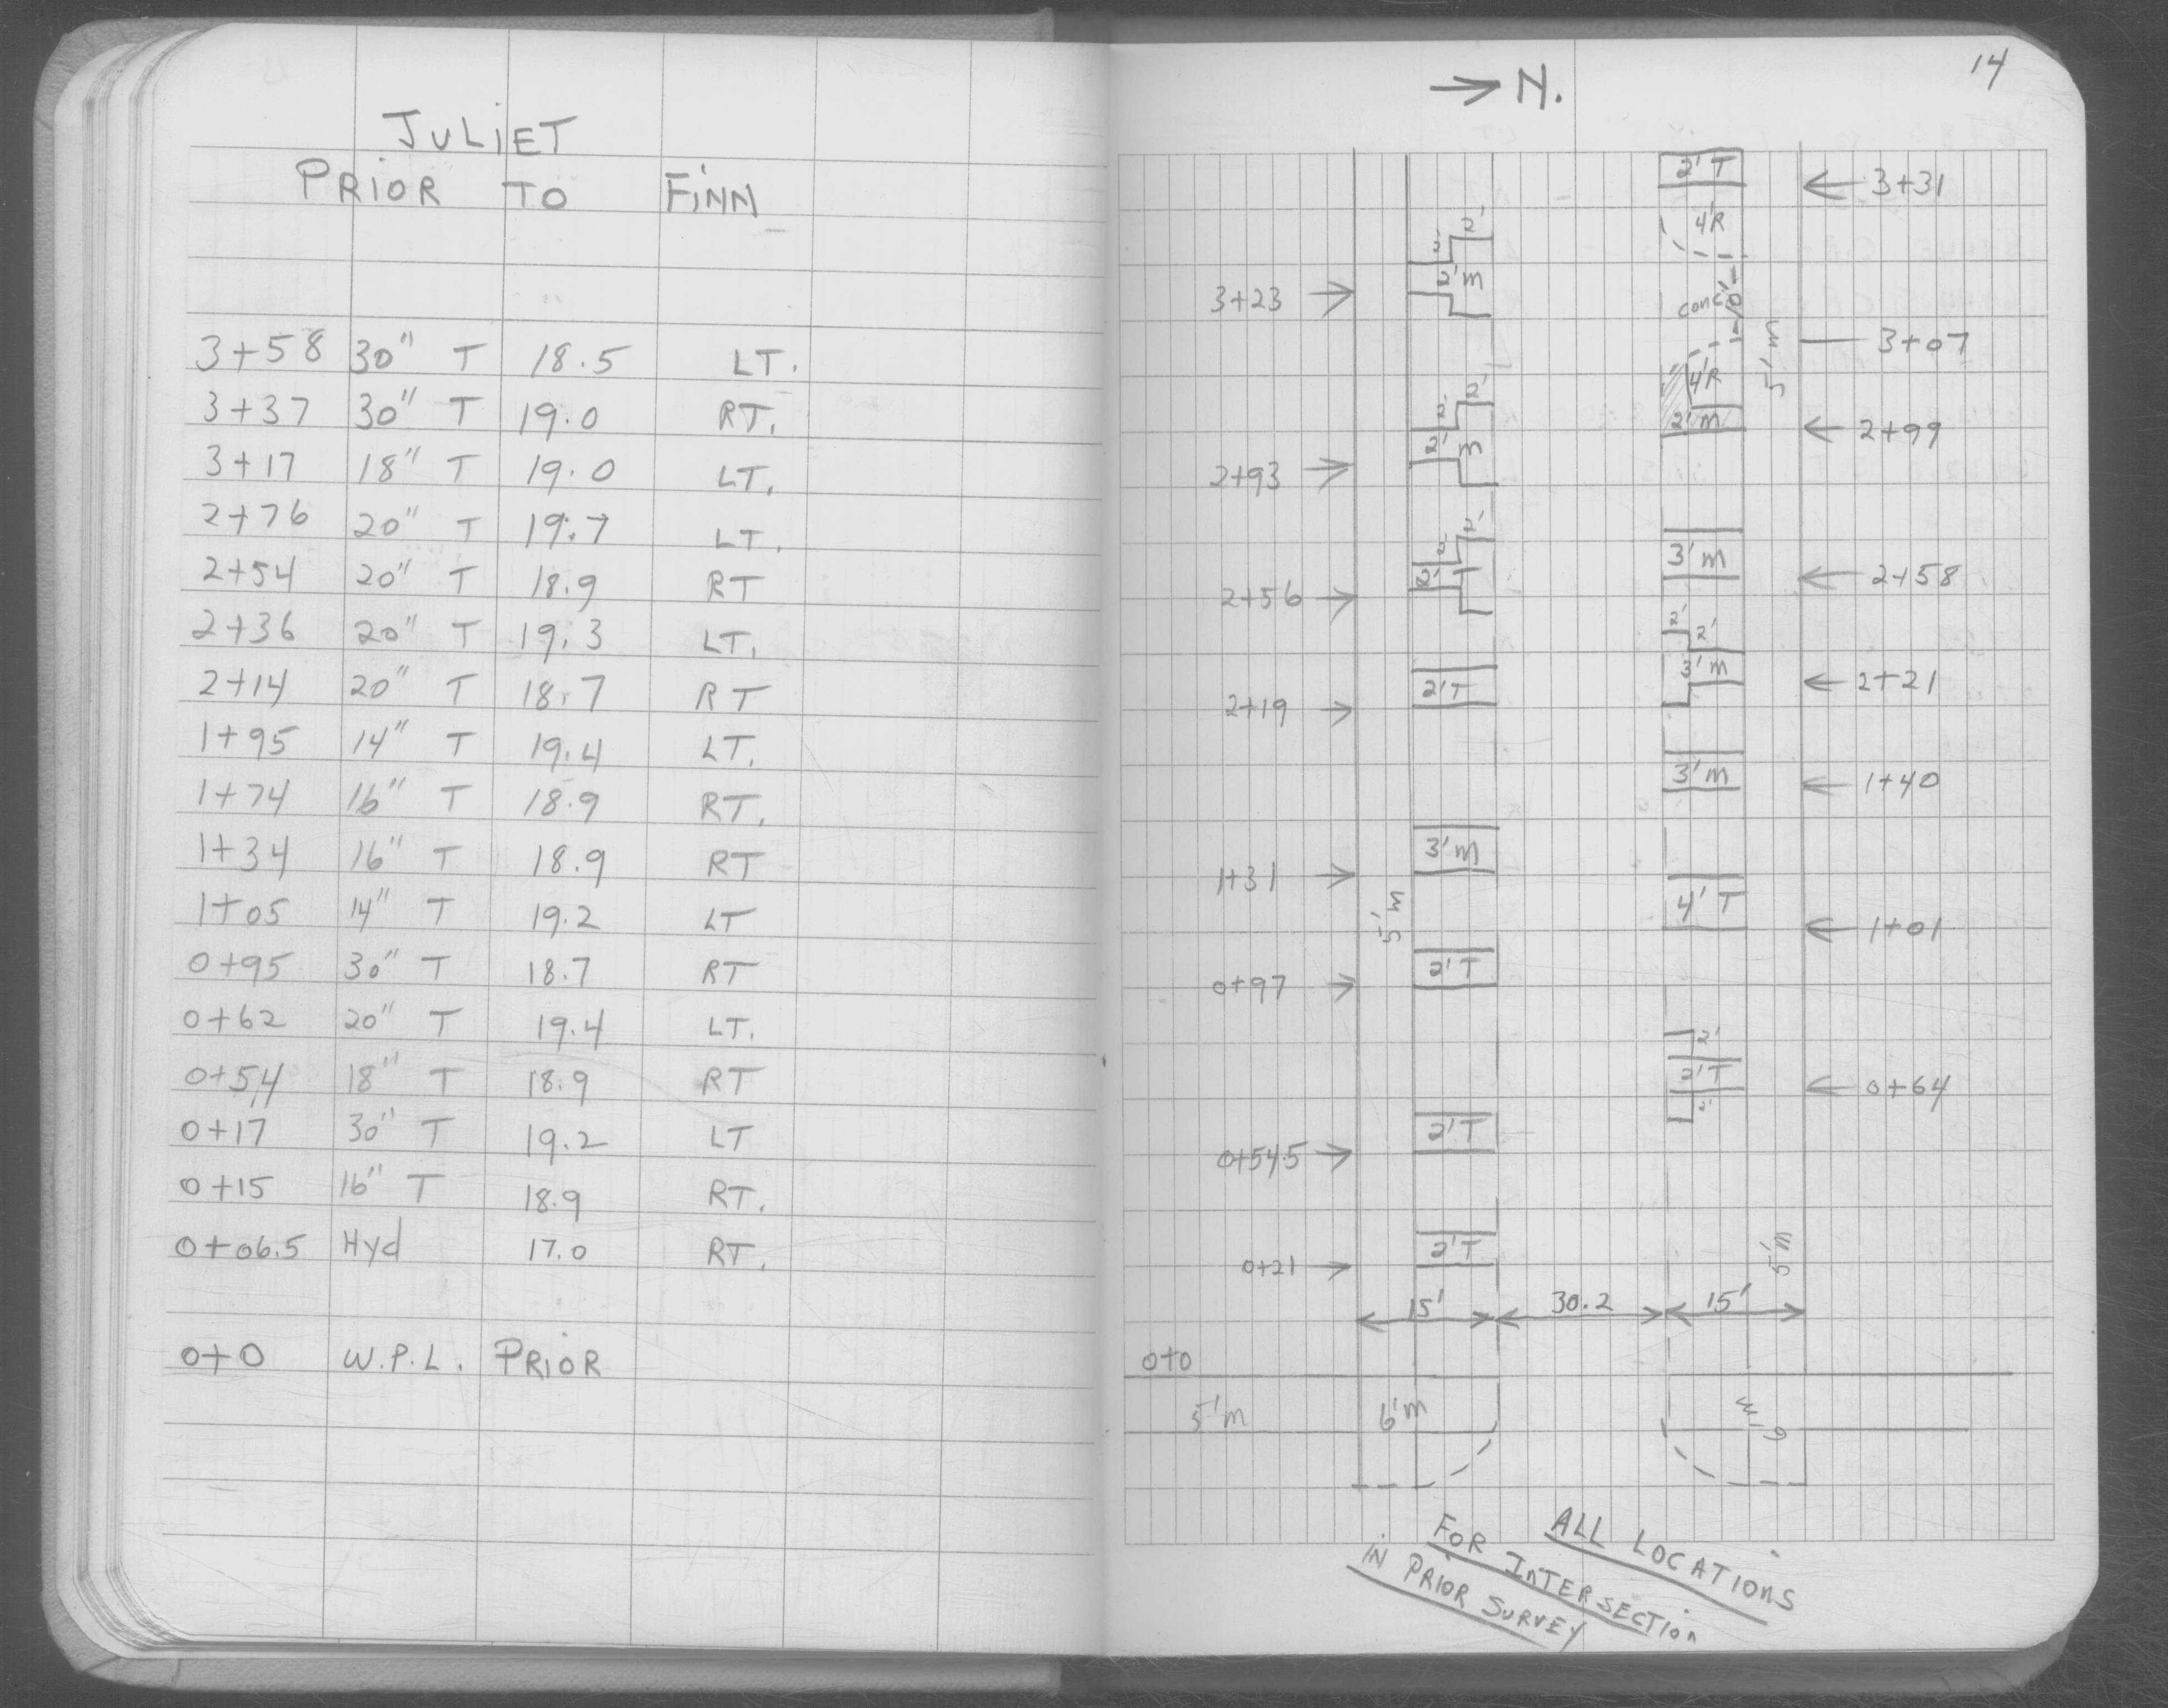 JULIET
PRIOR TO FINN
3+58 30" T 18.5 LT.
3+37 30" T 19.0 RT.
3+17 18" T 19.0 LT.
2+76 20" T 19.7 LT.
2+54 20" T 18.9 RT
2+36 20" T 19.3 LT.
2+14 20" T 18.7 RT
1+95 14" T 19.4 LT.
1+74 16" T 18.9 RT.
1+34 16" T 18.9 RT
1+05 14" T 19.2 LT
0+95 30" T 18.7 RT
0+62 20" T 19.4 LT.
0+54 18" T 18.9 RT
0+17 30" T 19.2 LT
0+15 16" T 18.9 RT.
0+06.5 Hyd 17.0 RT.
0+0 W.P.L. PRIOR
14
→ N.
2'T ← 3+31
2' 4'R
2'
3+23 → 2'm conc 10'
5'm 3+07
2' 4'R
2' 2'm ← 2+99
2+93 → 2'm
2'
2' 3'm
2+56 → 2' ← 2+58
2' 2'
2+19 → 2'T 3'm ← 2+21
3'm ← 1+40
1+31 → 3'm
5'm 4'T ← 1+01
0+97 → 2'T
2'
2'T ← 0+64
2'
0+54.5 → 2'T
0+21 → 2'T 5'm
15' 30.2 15'
0+0
5'm 6'm 6'm
ALL LOCATIONS
FOR INTERSECTION
IN PRIOR SURVEY